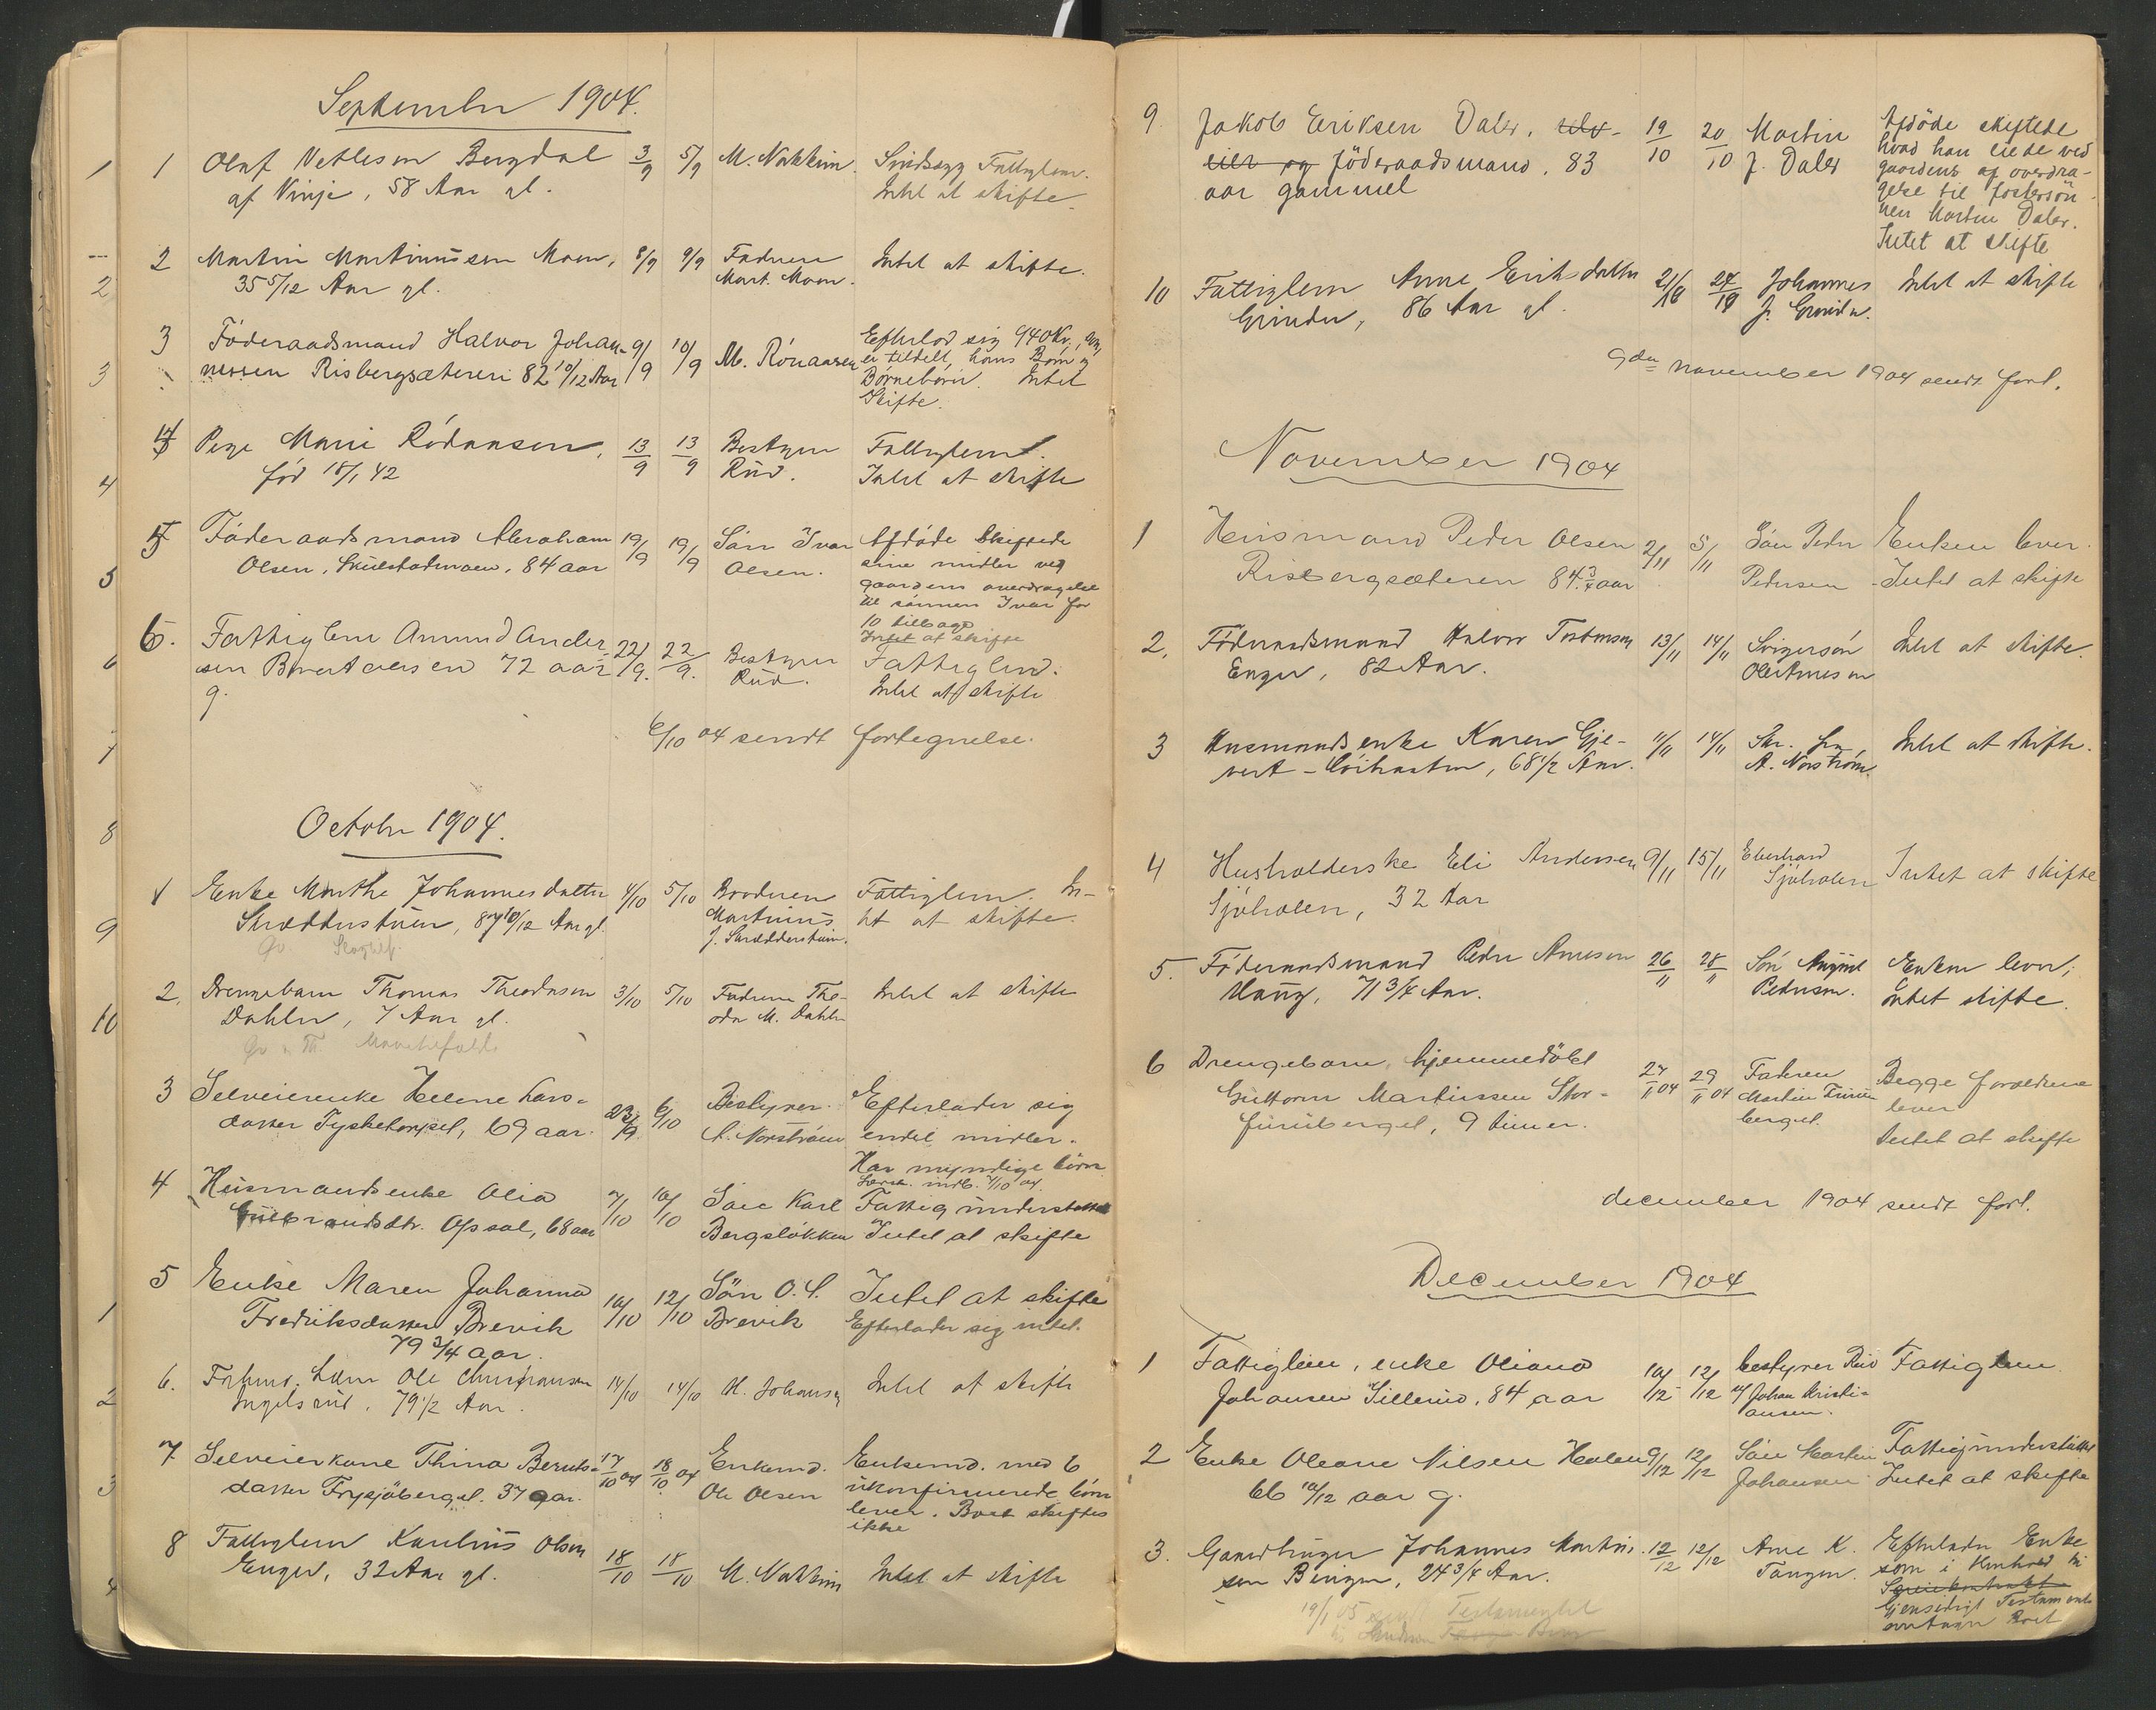 September 1904.
1 Olaf Vetlesen Bergdal 3/9 5/9 M. Nakkim. Sindssyg Fattiglem.
af Vinje, 58 Aar gl. Intet at skifte.
2 Martin Martinussen Moen, 8/9 9/9 Faderen Intet at skifte.
35 5/12 Aar gl. Mart. Moen.
3 Föderaadsmand Halvor Johan- 9/9 10/9 M. Rönaasen Efterlod sig 940 Kr., som
nessen Risbergsæteren 82 10/12 Aar er tildelt hans Börn og
Börnebörn. Intet
Skifte.
4 Pige Marie Rödaasen, 13/9 13/9 Bestyrer Fattiglem.
född 18/1 42 Rud. Intet at skifte
5 Föderaadsmand Abraham 19/9 19/9 Sön Ivar Afdöde skiftede
Olsen, 84 aar Olsen. sine midler ved
gaardens overdragelse
til sönnen Ivar for
10 til
Intet at skifte
6. Fattiglem Amund Ander- 22/9. 22/9. Bestyrer Fattiglem.
sen 72 aar Rud. Intet at skifte
g.
6/10 04 sendt fortegnelse.
October 1904.
1 Enke Marthe Johannesdatter 4/10 5/10 Broderen Fattiglem. In-
Skrædderstuen, 87 10/12 Aar gl. Martinus tet at skifte.
J. Skrædderstuen.
2, Drengebarn Thomas Theodorsen 3/10 5/10 Faderen The- Intet at skifte
Dahler, 7 Aar gl. odor M. Dahler
3 Selveierenke Helene Lars- 23/9 6/10 Bestyrer Efterlader sig
datter Tysketorpet, 69 aar. A. Norström endel midler.
Har myndige börn
indb. 7/10 04.
4 Husmandsenke Olia 7/10 10/10 Sön Karl Fattigunderstöttet
Gulbrandsdtr. Opsal, 68 aar Bergslökken Intet at skifte
5 Enke Maren Johanna 10/10 12/10 Sön O. S. Intet at skifte
Fredriksdatter Brevik Brevik Efterlader sig intet.
79 3/4 aar.
6. Forhenv. Ole Christiansen 14/10 14/10 H. Johansen Intet at skifte
Ingelsrud, 79 1/2 Aar.
7 Selveierkone Thina Bernts- 17/10 04 18/10 04 Enkemd. Enkemd. med 6
datter Frysjöberget. 37 aar. Ole Olsen ukonfirmerede börn
lever. Boet skiftes
ikke
8 Fattiglem Karelius Olsen 18/10 18/10 M. Nakkim Intet at skifte
Enger, 32 Aar gl.
9 Jakob Eriksen Daler, selv- 19/10 20/10 Martin Afdöde skiftede
eier og föderaadsmand, 83 J. Daler hvad han eiede ved
aar gammel gaardens overdra-
gelse til fostersön-
nen Martin Daler.
Intet at skifte
10 Fattiglem Anne Eriksdatter 21/10 27/10 Johannes Intet at skifte
Grinder, 86 Aar gl. J. Grinder.
9den november 1904 sendt fort.
November 1904
1 Husmand Peder Olsen 2/11 5/11 Sön Peder Enken lever.
Risbergsæteren 84 3/4 aar Pedersen Intet at skifte
2, Föderaadsmand Halvor Torstensen 13/11 14/11 Svigersön Intet at skifte.
Enger, 82 Aar. Ole Arnesen
3 Husmandsenke Karen Gje- 11/11 14/11 A. Norström. Intet at skifte.
vert-, 68 1/2 Aar.
4 Husholderske Eli Andersen 9/11 15/11 Eberhard Intet at skifte
Sjöholen, 32 Aar Sjöholen
5. Föderaadsmand Peder Arnesen 26/11 28/11 Sön August Enken lever;
Haug, 71 3/4 Aar. Pedersen. Intet skifte.
6 Drengebarn, hjemmedöbt 27/11 04 29/11 04 Faderen Begge forældrene
Guttorm Martinssen Stor- Martin Furu- lever
furuberget, 9 timer. berget. Intet at skifte
december 1904 sendt fort.
December 1904
1 Fattiglem, enke Oliana 10/12 12/12 bestyrer Rud Fattiglem
Johansen Sillerud, 84 aar v/ Johan Kristi-
ansen.
2 Enke Oleane Nilsen Holen 9/12 12/12 Sön Martin Fattigunderstöttet
66 10/12 aar g. Johansen Intet at skifte
3. Gaardbruger Johannes Martin- 12/12 12/12 Arne K. Efterlader Enke
sen Binger, 24 3/4 Aar. Tangen. som i Henhold til
Gjensidigt Testament
overtager Boet
19/1 05 sendt Testamentet
1
2
3
4
5
6
7
8
9
10
1
2
3
4